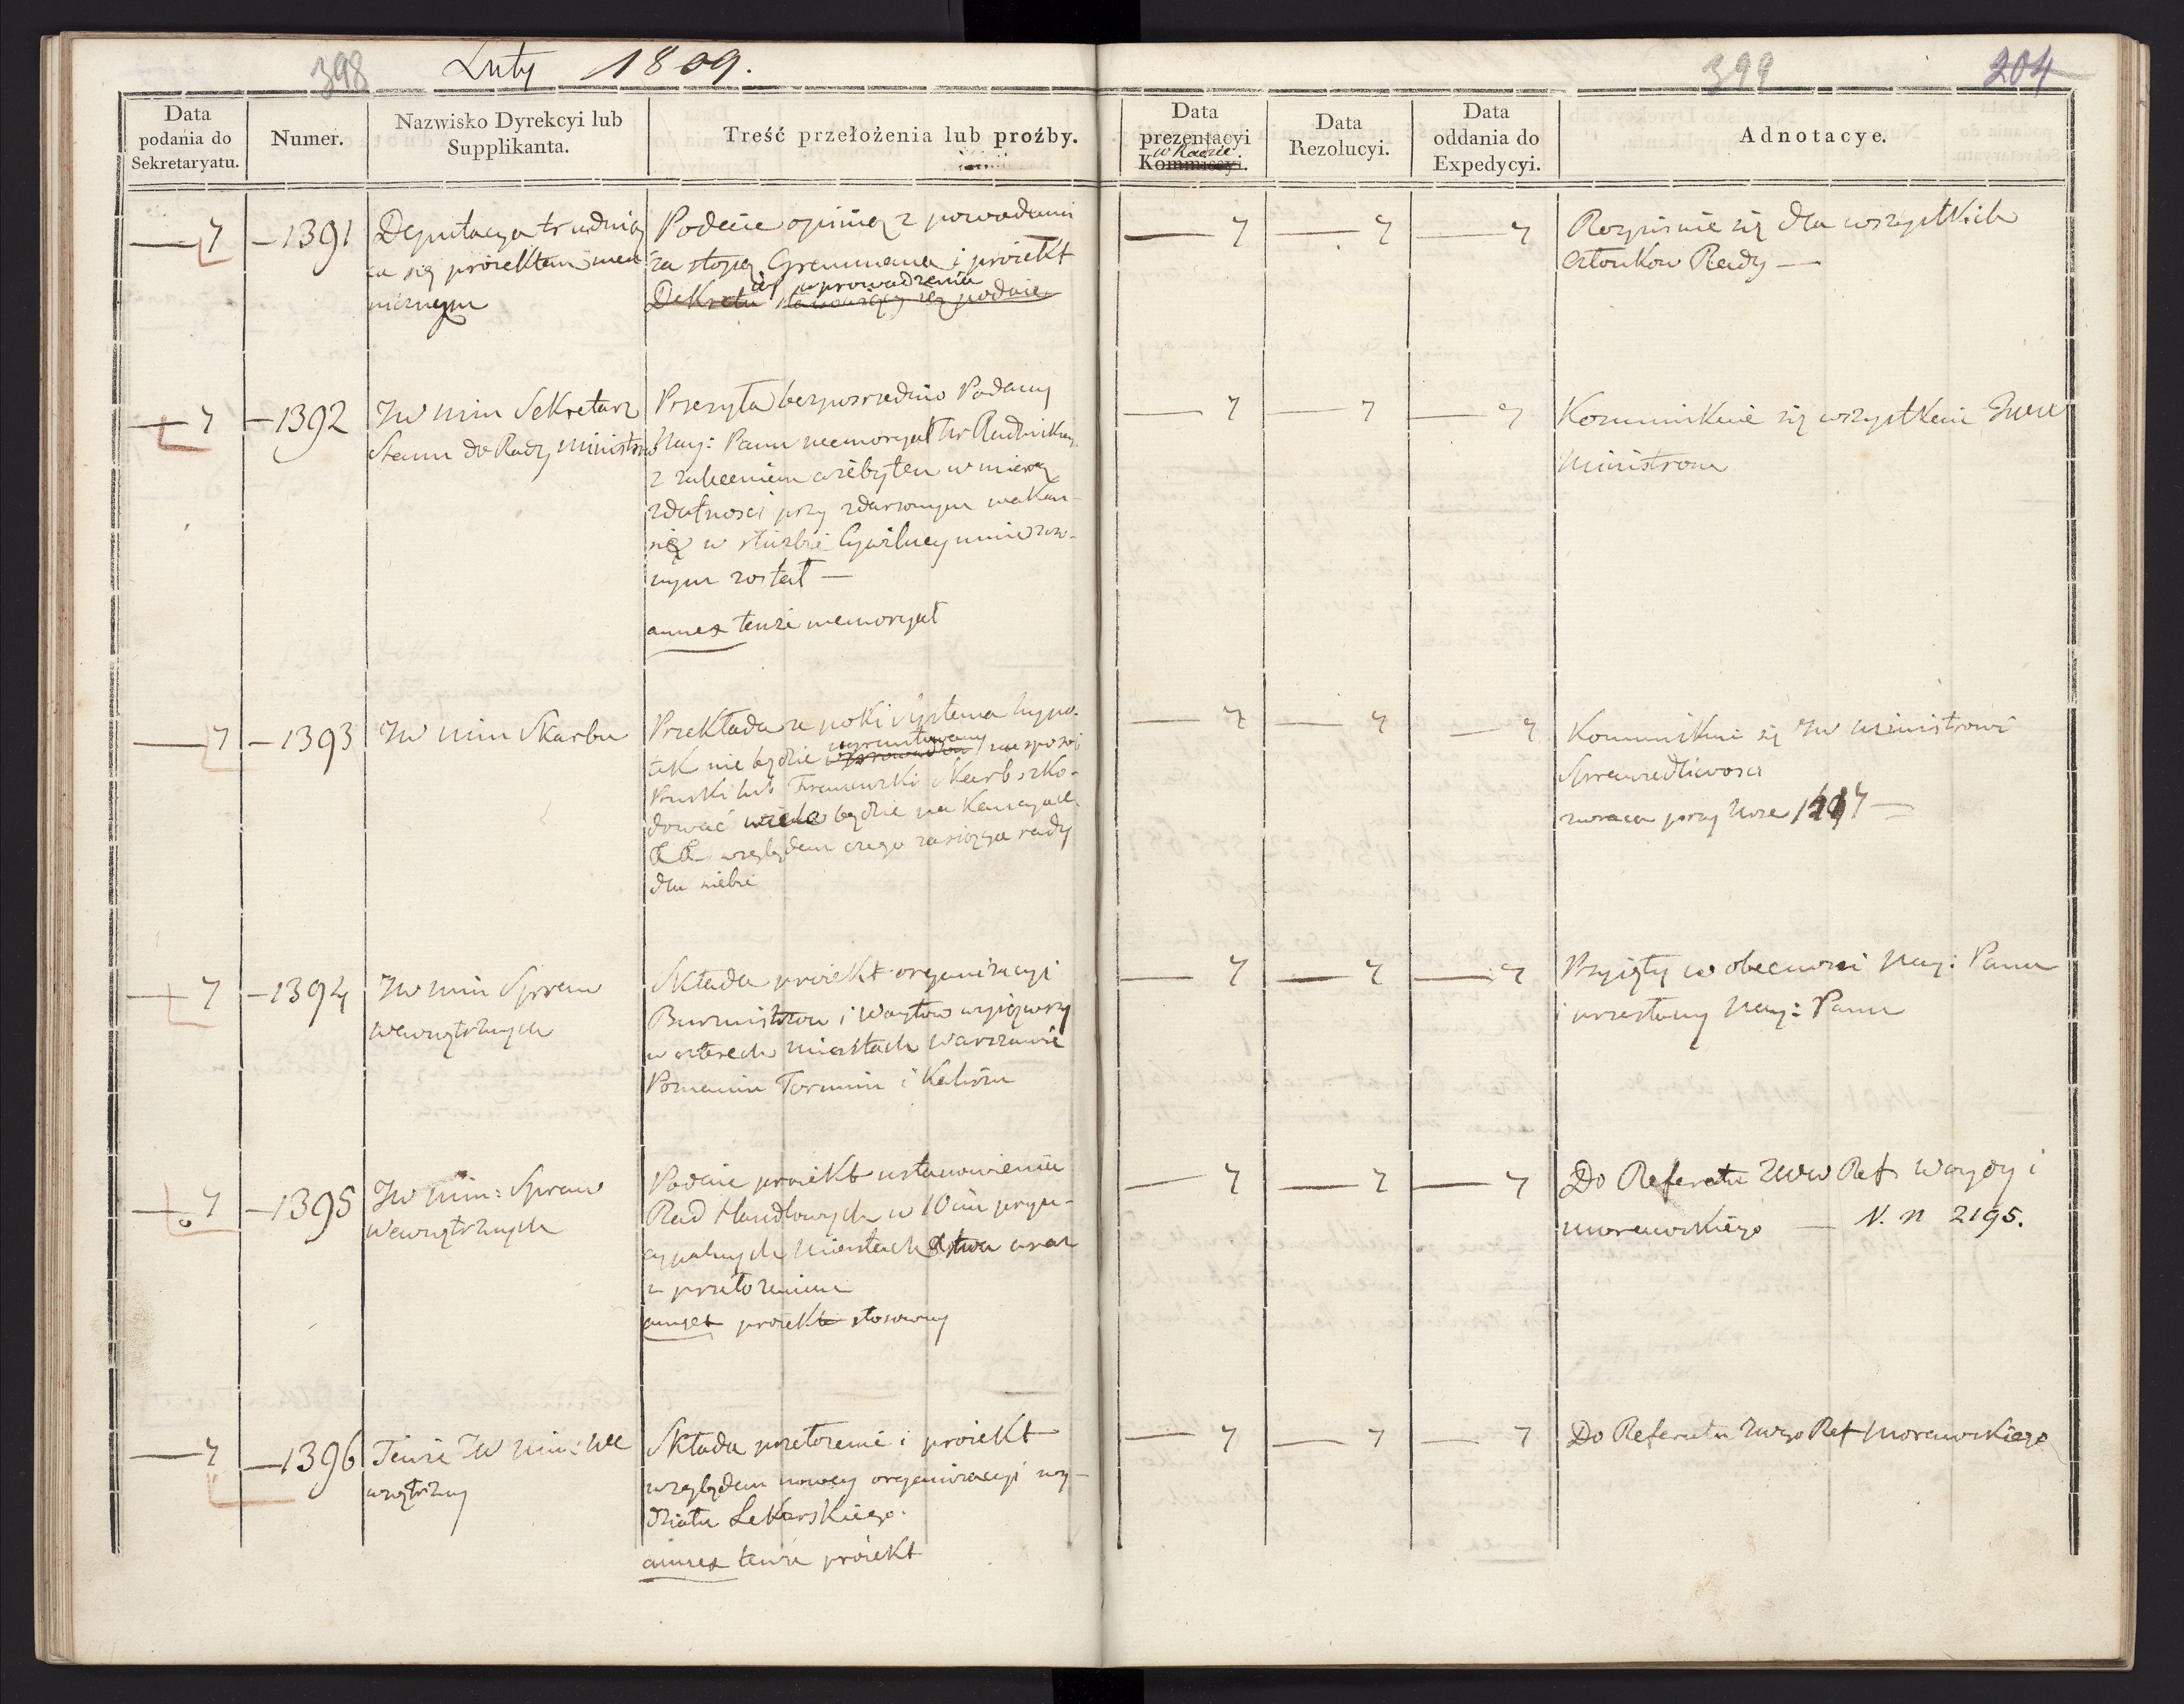 398
Luty 1809.
399
204
Data
podania do
Sekretaryatu.
Numer.
Nazwisko Dyrekcyi lub
Supplikanta.
Treść przełożenia lub proźby.
Data
prezentacyi
w Radzie
Kommissyi.
Data
Rezolucyi.
Data
oddania do
Expedycyi.
Adnotacye.
— 7
— 1391
Deputacya trudnią
ca się proiektem men
nicznym
Podaie opinią z powodami
za stopą Gremmana i proiekt
iey wprowadzenia
Dekretu podaie
— 7
— 7
— 7
Rozpisuie się dla wszystkich
Członkow Rady —
— 7
— 1392
JW Min Sekretarz
Stanu do Rady Ministrow
Przesyła bezposrzednio Podany
Nay: Panu memoryał
z zaleceniem ażeby ten w miarę
zdatnosci przy zdarzonym wakan-
się w służbie Cywilney umieszczo-
nym został —
annex tenże memoryał
— 7
— 7
— 7
Kommunikuie się wszystkim JWW
Ministrom
— 7
— 1393
JW Min Skarbu
Przekłada że poki systema hypo-
tek nie będzie na sposob
Pruski lub Francuzki Skarb szko-
dować wiele będzie na Kaucyach
względem czego zasięga rady
dla siebie
— 7
— 7
— 7
Kommunikuie się JW Ministrowi
Sprawiedliwosci
zwraca przy Nrze
— 7
— 1394
JW Min Spraw
Wewnętrznych
Składa proiekt organizacyi
Burmistrzow i Woytow wyiąwszy
w czterech miastach Warszawie
Poznaniu Toruniu i Kaliszu
— 7
— 7
— 7
Przyięty w obecnosci Nay: Pana
i przesłany Nay: Panu
— 7
— 1395
JW Min: Spraw
Wewnętrznych
Podaie proiekt ustanowienia
Rad Handlowych w 10ciu pryn-
cypalnych Miastach Xstwa wraz
z przełożeniem
annex proiekt stosowny
— 7
— 7
— 7
Do Referatu JWW Ref. Woydy i
Morawskiego — N. n 2195.
— 7
— 1396
Tenże JW Min: We
wnętrzny
Składa przełożenie i proiekt
względem nowey organizacyi wy-
działu Lekarskiego.
annex tenże proiekt
— 7
— 7
— 7
Do Referatu JWgo Ref Morawskiego